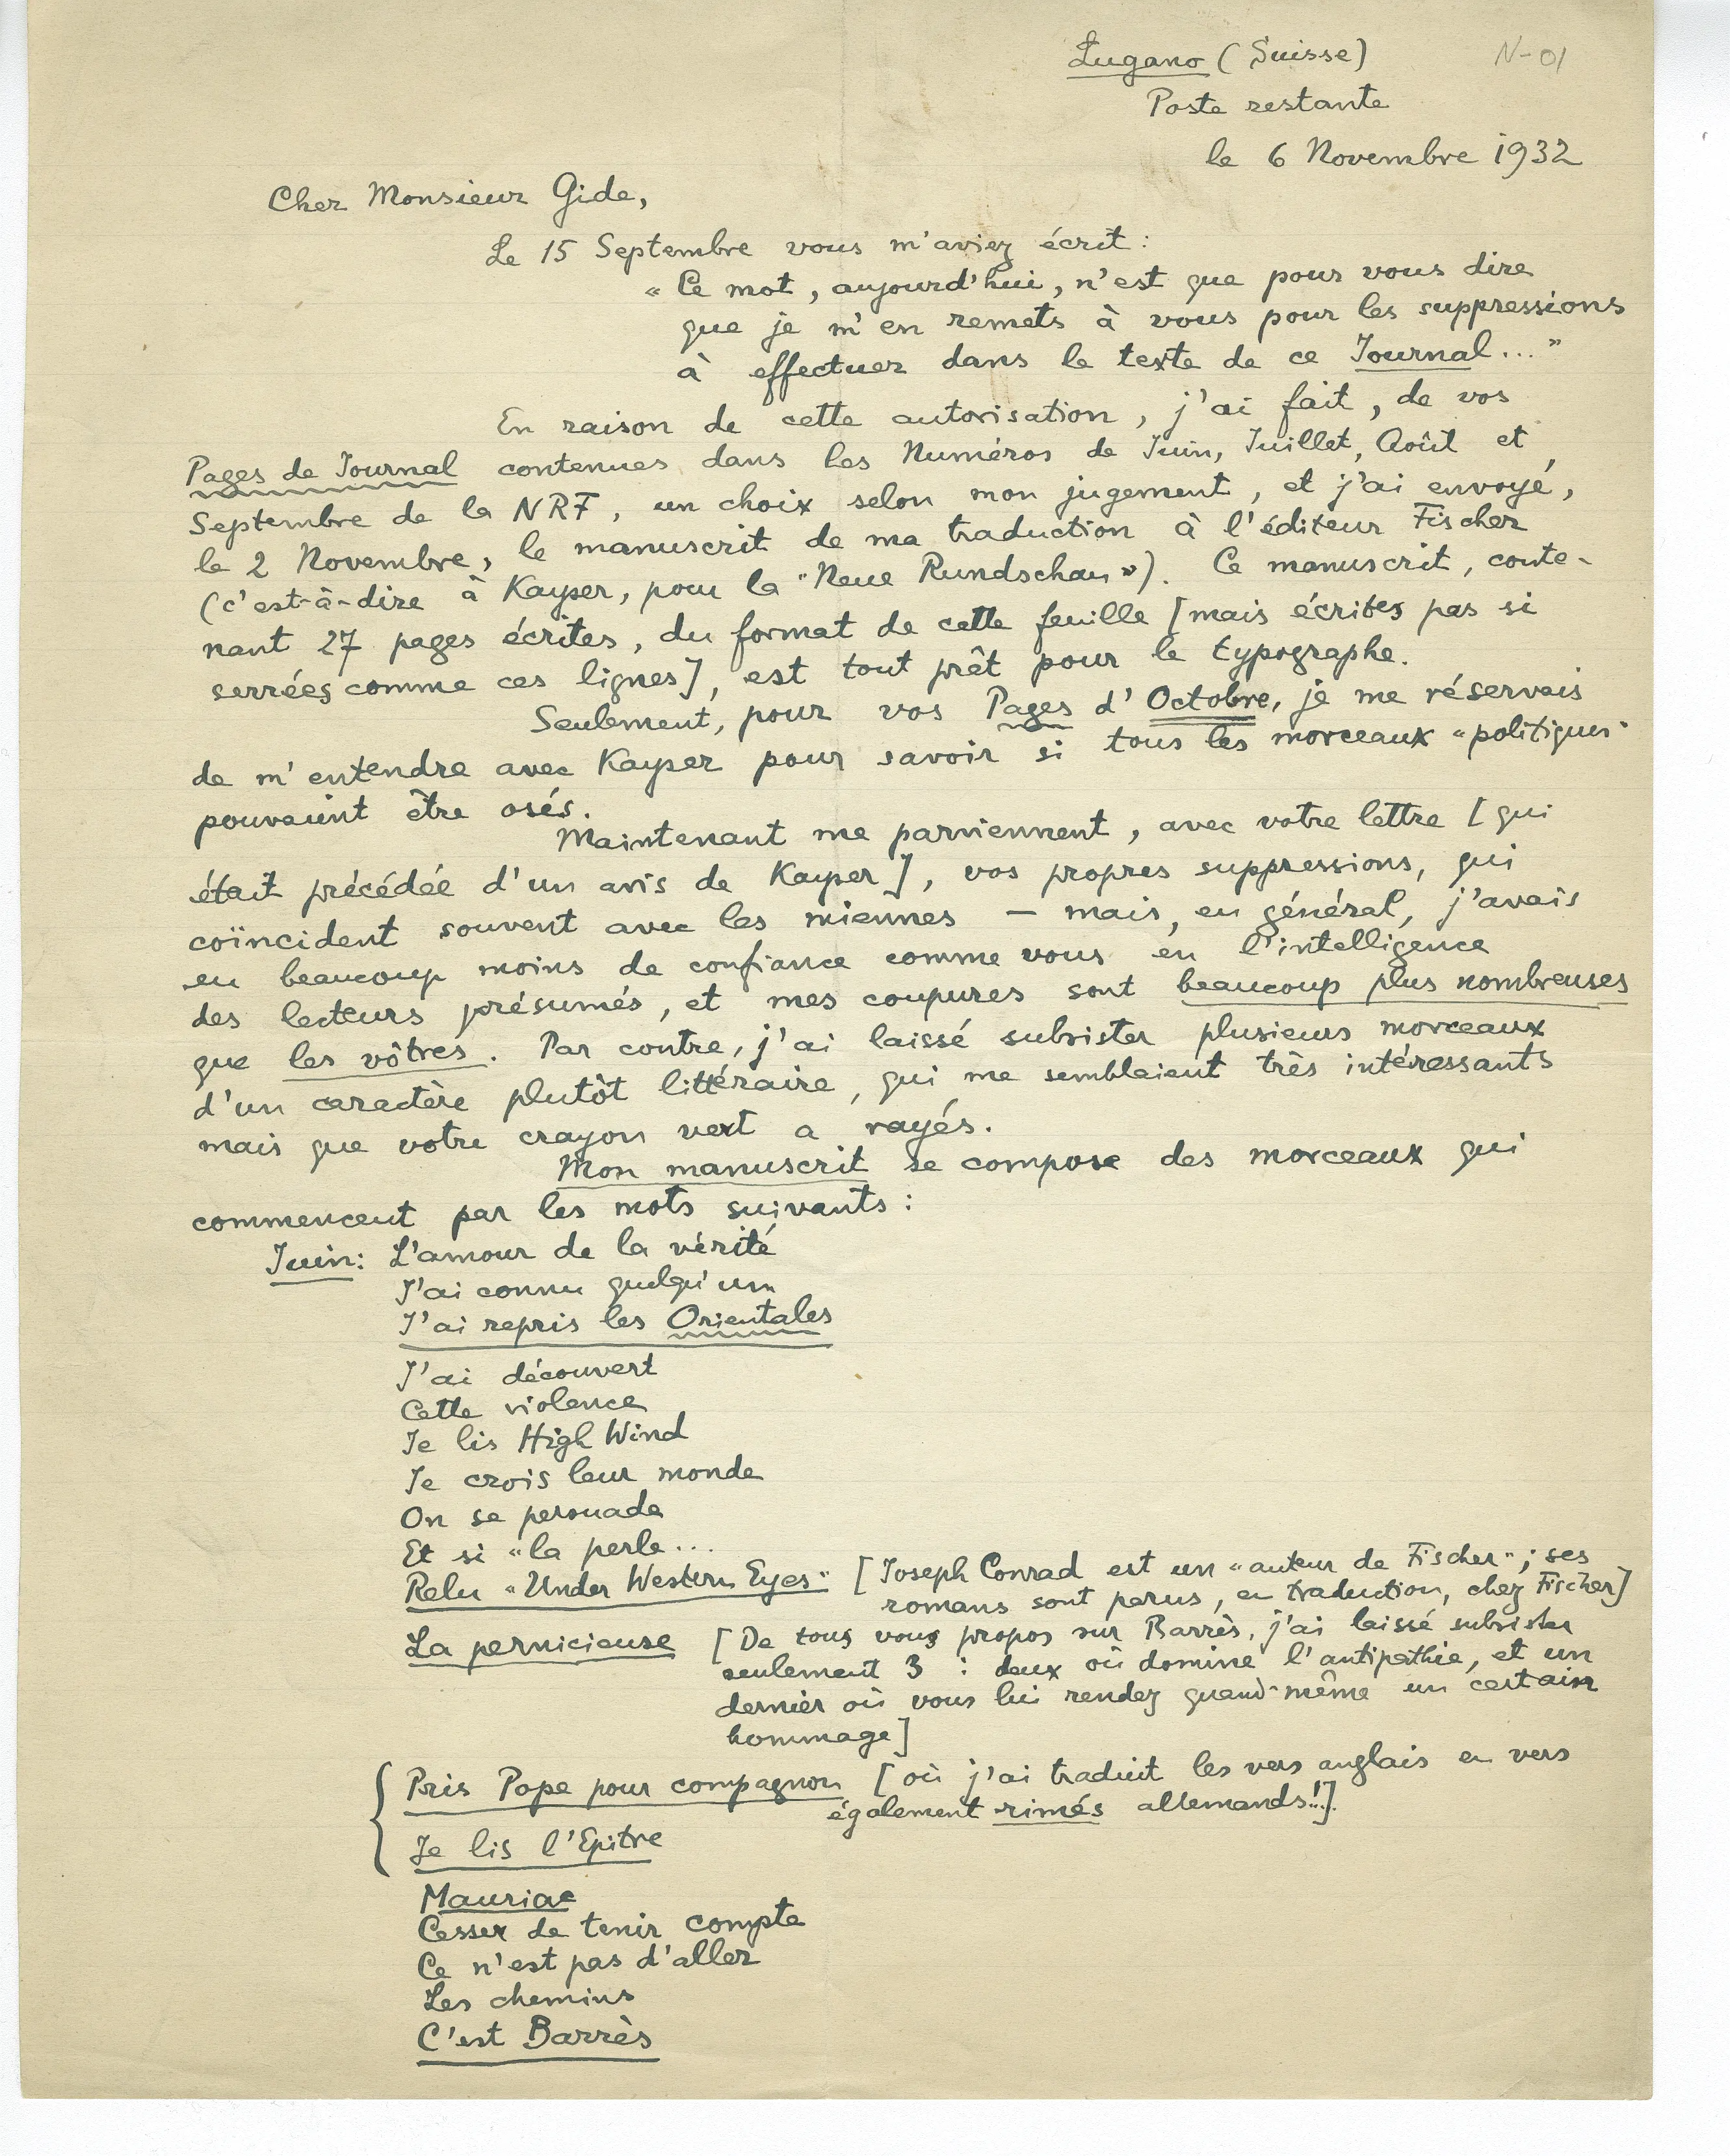 Lugano (Suisse)
N-01
Poste restante
le 6 Novembre 1932
Cher Monsieur Gide,
Le 15 Septembre vous m'aviez écrit :
« Ce mot, aujourd'hui, n'est que pour vous dire
que je m'en remets à vous pour les suppressions
à effectuer dans le texte de ce Journal... »
En raison de cette autorisation, j'ai fait, de vos
Pages de Journal contenues dans les Numéros de Juin, Juillet, Août et
Septembre de la NRF, un choix selon mon jugement, et j'ai envoyé,
le 2 Novembre, le manuscrit de ma traduction à l'éditeur Fischer
(c'est-à-dire à Kayser, pour la "Neue Rundschau"). Ce manuscrit, conte-
nant 27 pages écrites, du format de cette feuille [mais écrites pas si
serrées comme ces lignes], est tout prêt pour le typographe.
Seulement, pour vos Pages d'Octobre, je me réservais
de m'entendre avec Kayser pour savoir si tous les morceaux "politiques"
pouvaient être osés.
Maintenant me parviennent, avec votre lettre [qui
était précédée d'un avis de Kayser], vos propres suppressions, qui
coïncident souvent avec les miennes – mais, en général, j'avais
eu beaucoup moins de confiance comme vous en l'intelligence
des lecteurs présumés, et mes coupures sont beaucoup plus nombreuses
que les vôtres. Par contre, j'ai laissé subsister plusieurs morceaux
d'un caractère plutôt littéraire, qui me semblaient très intéressants
mais que votre crayon vert a rayés.
Mon manuscrit se compose des morceaux qui
commencent par les mots suivants :
Juin: L'amour de la vérité
J'ai connu quelqu'un
J'ai repris les Orientales
J'ai découvert
Cette violence
Je lis High Wind
Je crois leur monde
On se persuade
Et si "la perle...
Relu "Under Western Eyes" [Joseph Conrad est un "auteur de Fischer"; ses
romans sont parus, en traduction, chez Fischer]
La pernicieuse [De tous vous propos sur Barrès, j'ai laissé subsister
seulement 3 : deux où domine l'antipathie, et un
dernier où vous lui rendez quand-même un certain
hommage]
Pris Pope pour compagnon [où j'ai traduit les vers anglais en vers
également rimés allemands!..].
Je lis l'Epitre
Mauriac
Cesser de tenir compte
Ce n'est pas d'aller
Les chemins
C'est Barrès